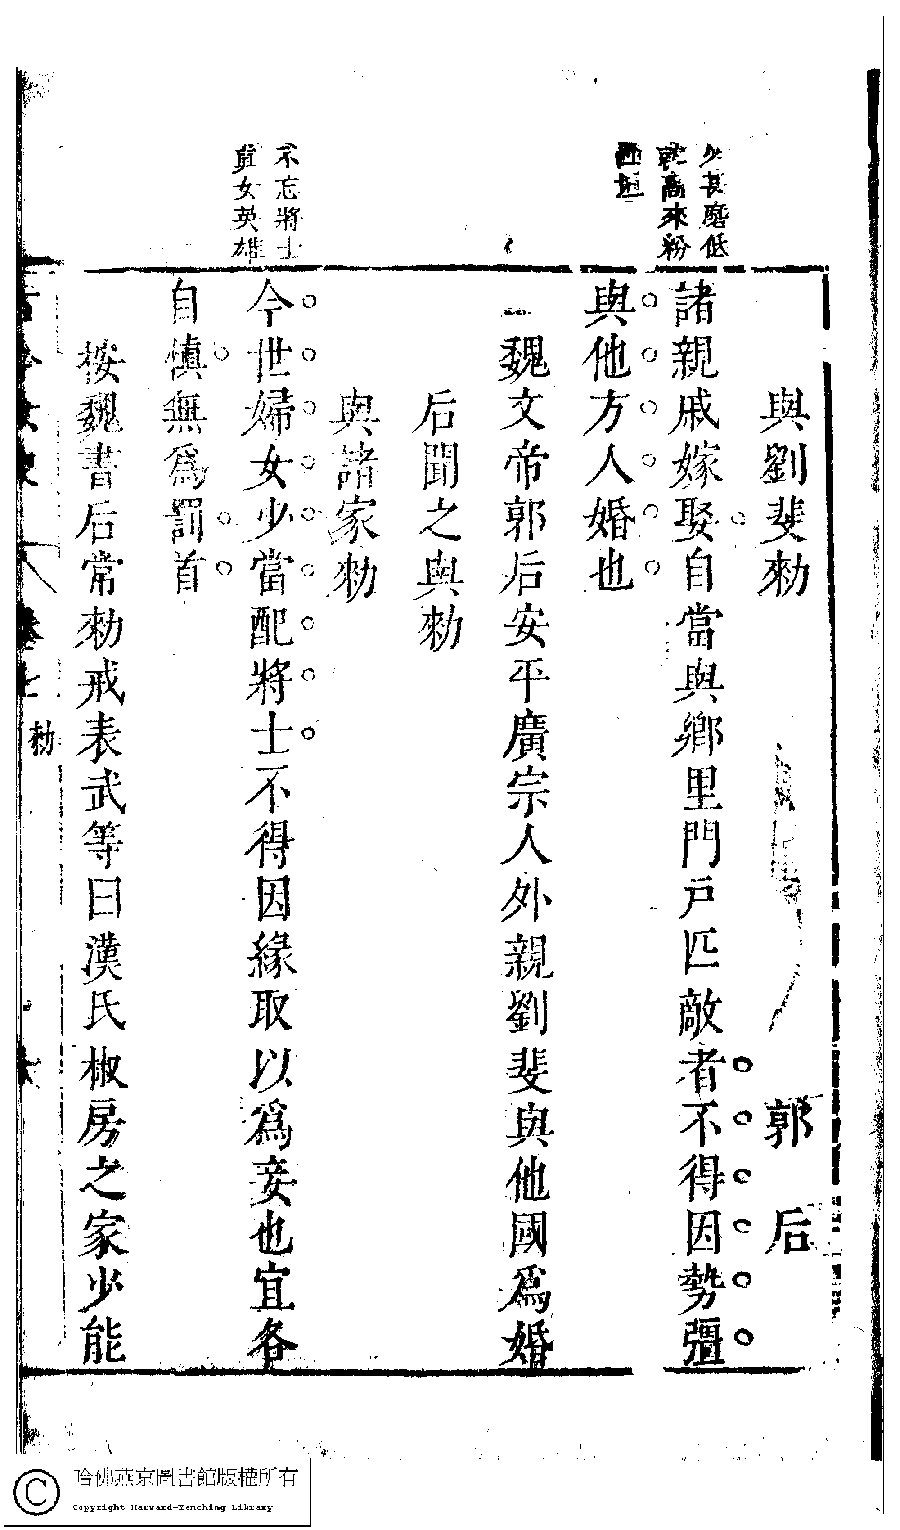 與劉斐勅
郭后
諸親戚嫁娶自當與鄉里門戶匹敵者不得因勢彊
與他方人婚也
魏文帝郭后安平廣宗人外親劉斐與他國爲婚
后聞之與勅
與諸家勅
今世婦女少當配將士不得因緣取以爲妾也宜各
自愼無爲罰首
按魏書后常勅戒表武等曰漢氏椒房之家少能
不忘將士
眞女英雄
古今女史
卷七
勅
哈佛燕京圖書館版權所有
Copyright Harvard-Yenching Library